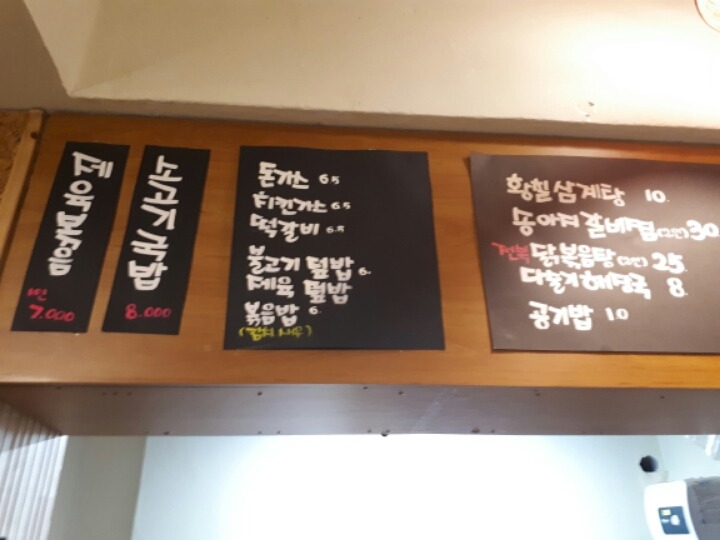 제육볶음
1인
7.000
소고기국밥
8.000
돈가스 6.5
치킨가스 6.5
떡갈비 6.5
불고기 덮밥 6.
제육 덮밥
볶음밥 6.
(김치, 새우)
황칠삼계탕 10.
송아지 갈비찜(2인) 30
전복 닭볶음탕(2인) 25.
다슬기 해장국 8.
공기밥 10